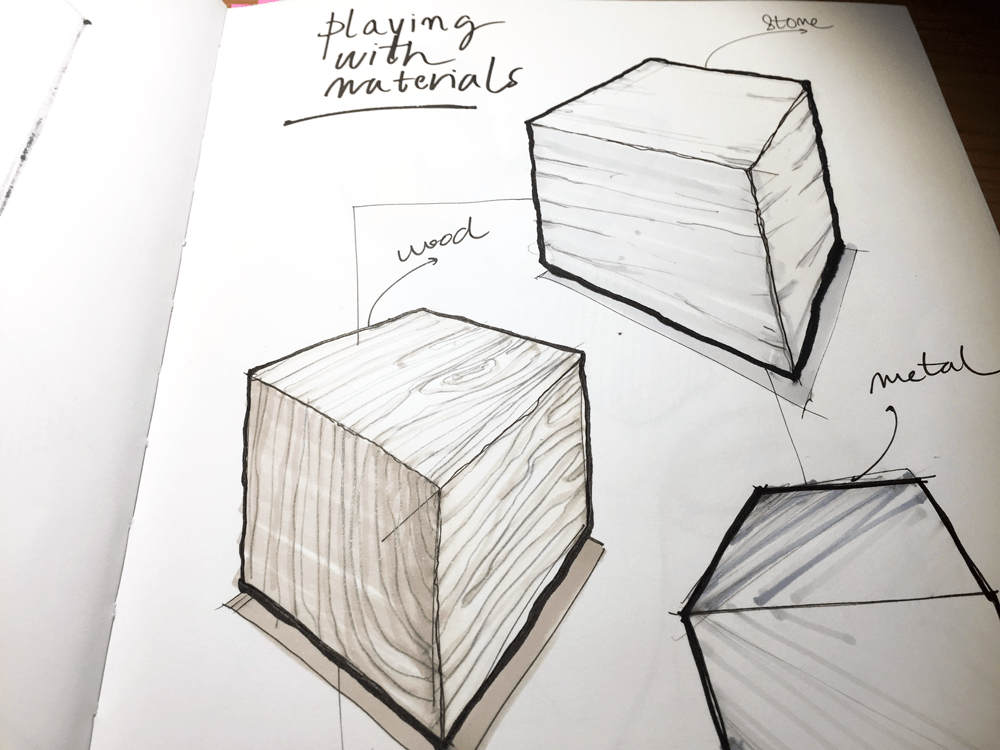 playing
with
materials
stone
wood
metal